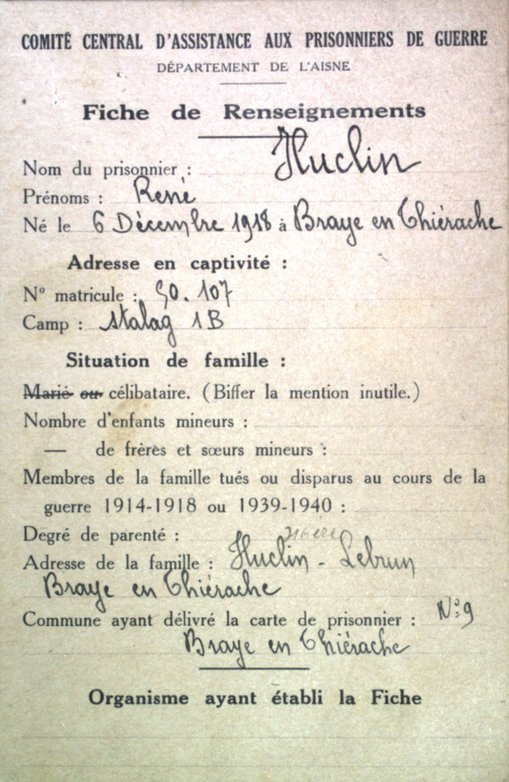 COMITÉ CENTRAL D'ASSISTANCE AUX PRISONNIERS DE GUERRE
DÉPARTEMENT DE L'AISNE
Fiche de Renseignements
Nom du prisonnier : Huclin
Prénoms : René
Né le 6 Décembre 1918 à Braye en Thiérache
Adresse en captivité :
N° matricule : 50.107
Camp : Stalag 1B
Situation de famille :
Marié ou célibataire. (Biffer la mention inutile.)
Nombre d'enfants mineurs :
— de frères et sœurs mineurs :
Membres de la famille tués ou disparus au cours de la
guerre 1914-1918 ou 1939-1940 :
Degré de parenté :
Adresse de la famille : Huclin - Lebrun
Braye en Thiérache
Commune ayant délivré la carte de prisonnier : N°9
Braye en Thiérache
Organisme ayant établi la Fiche